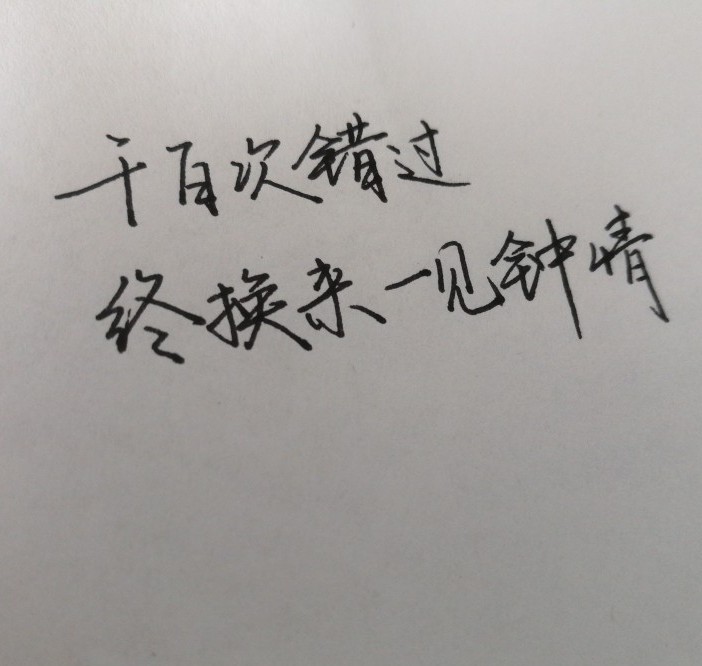 千百次错过
终换来一见钟情